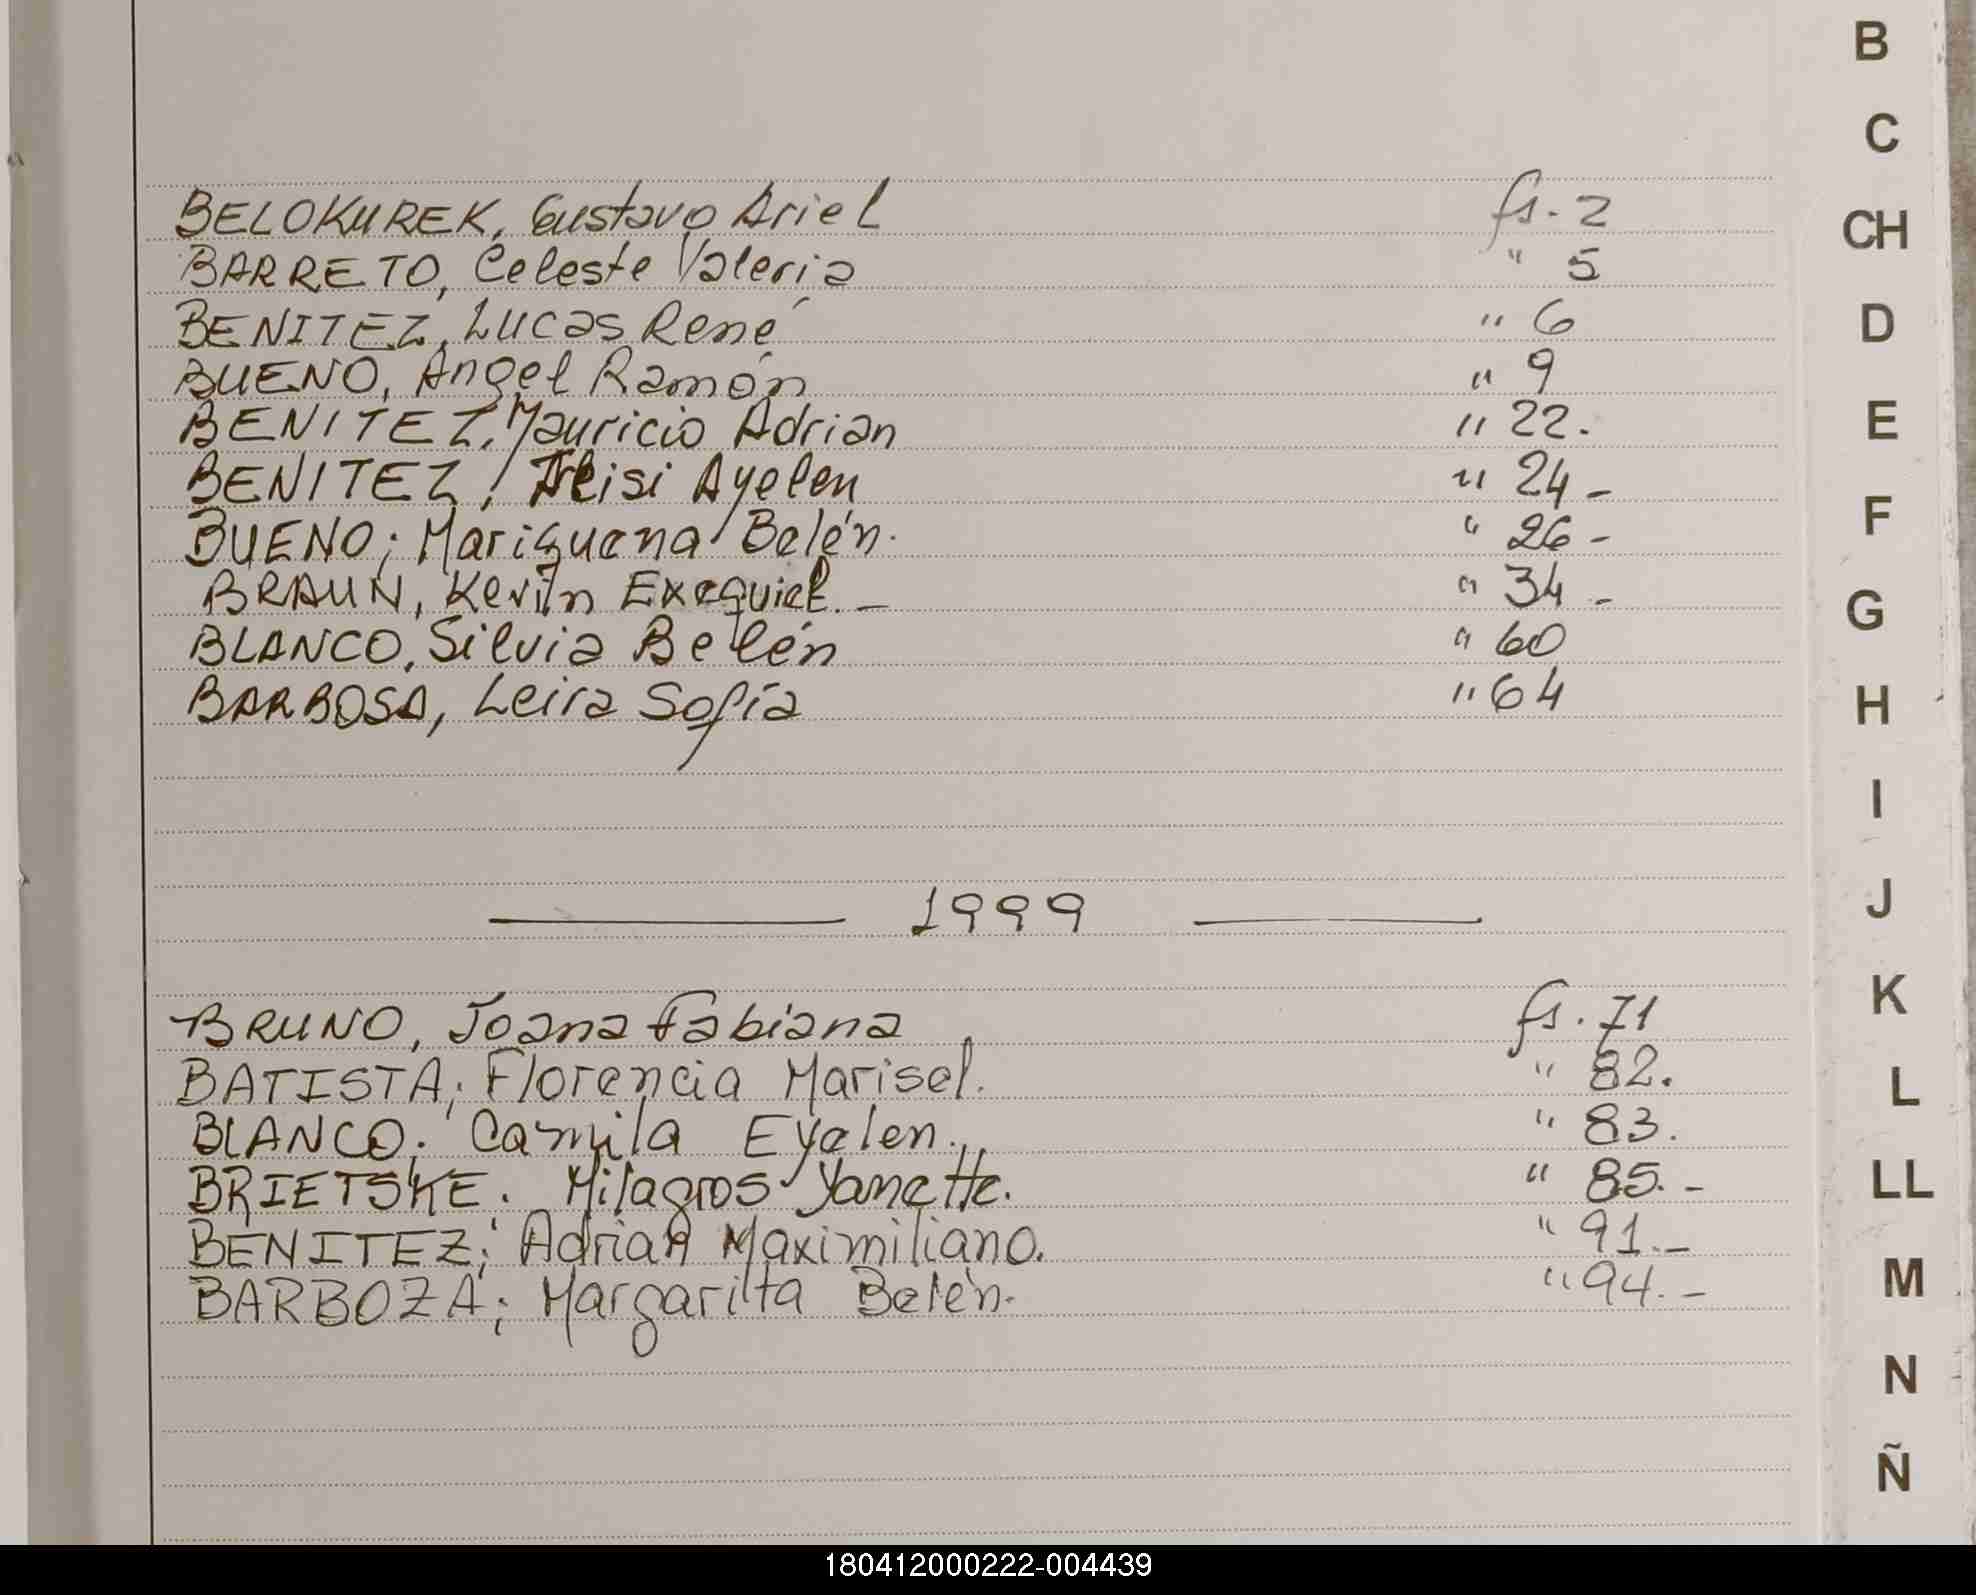 B
C
CH
D
E
F
G
H
I
J
K
L
LL
M
N
Ñ
BELOKUREK, Gustavo Ariel fs. 2
BARRETO, Celeste Valeria " 5
BENITEZ, Lucas René " 6
BUENO, Angel Ramón " 9
BENITEZ, Mauricio Adrian " 22.
BENITEZ, Ayelen " 24 -
BUENO; Mariquena Belén. " 26 -
BRAUN, Kevin Exequiel. - " 34 -
BLANCO, Silvia Belén " 60
BARBOSA, Leira Sofía " 64
1999
BRUNO, Joana Fabiana fs. 71
BATISTA; Florencia Marisel. " 82.
BLANCO; Camila Eyelen. " 83.
BRIETSKE. Milagros Yanette. " 85. -
BENITEZ; Adrian Maximiliano. " 91. -
BARBOZA; Margarita Belén. " 94. -
180412000222-004439